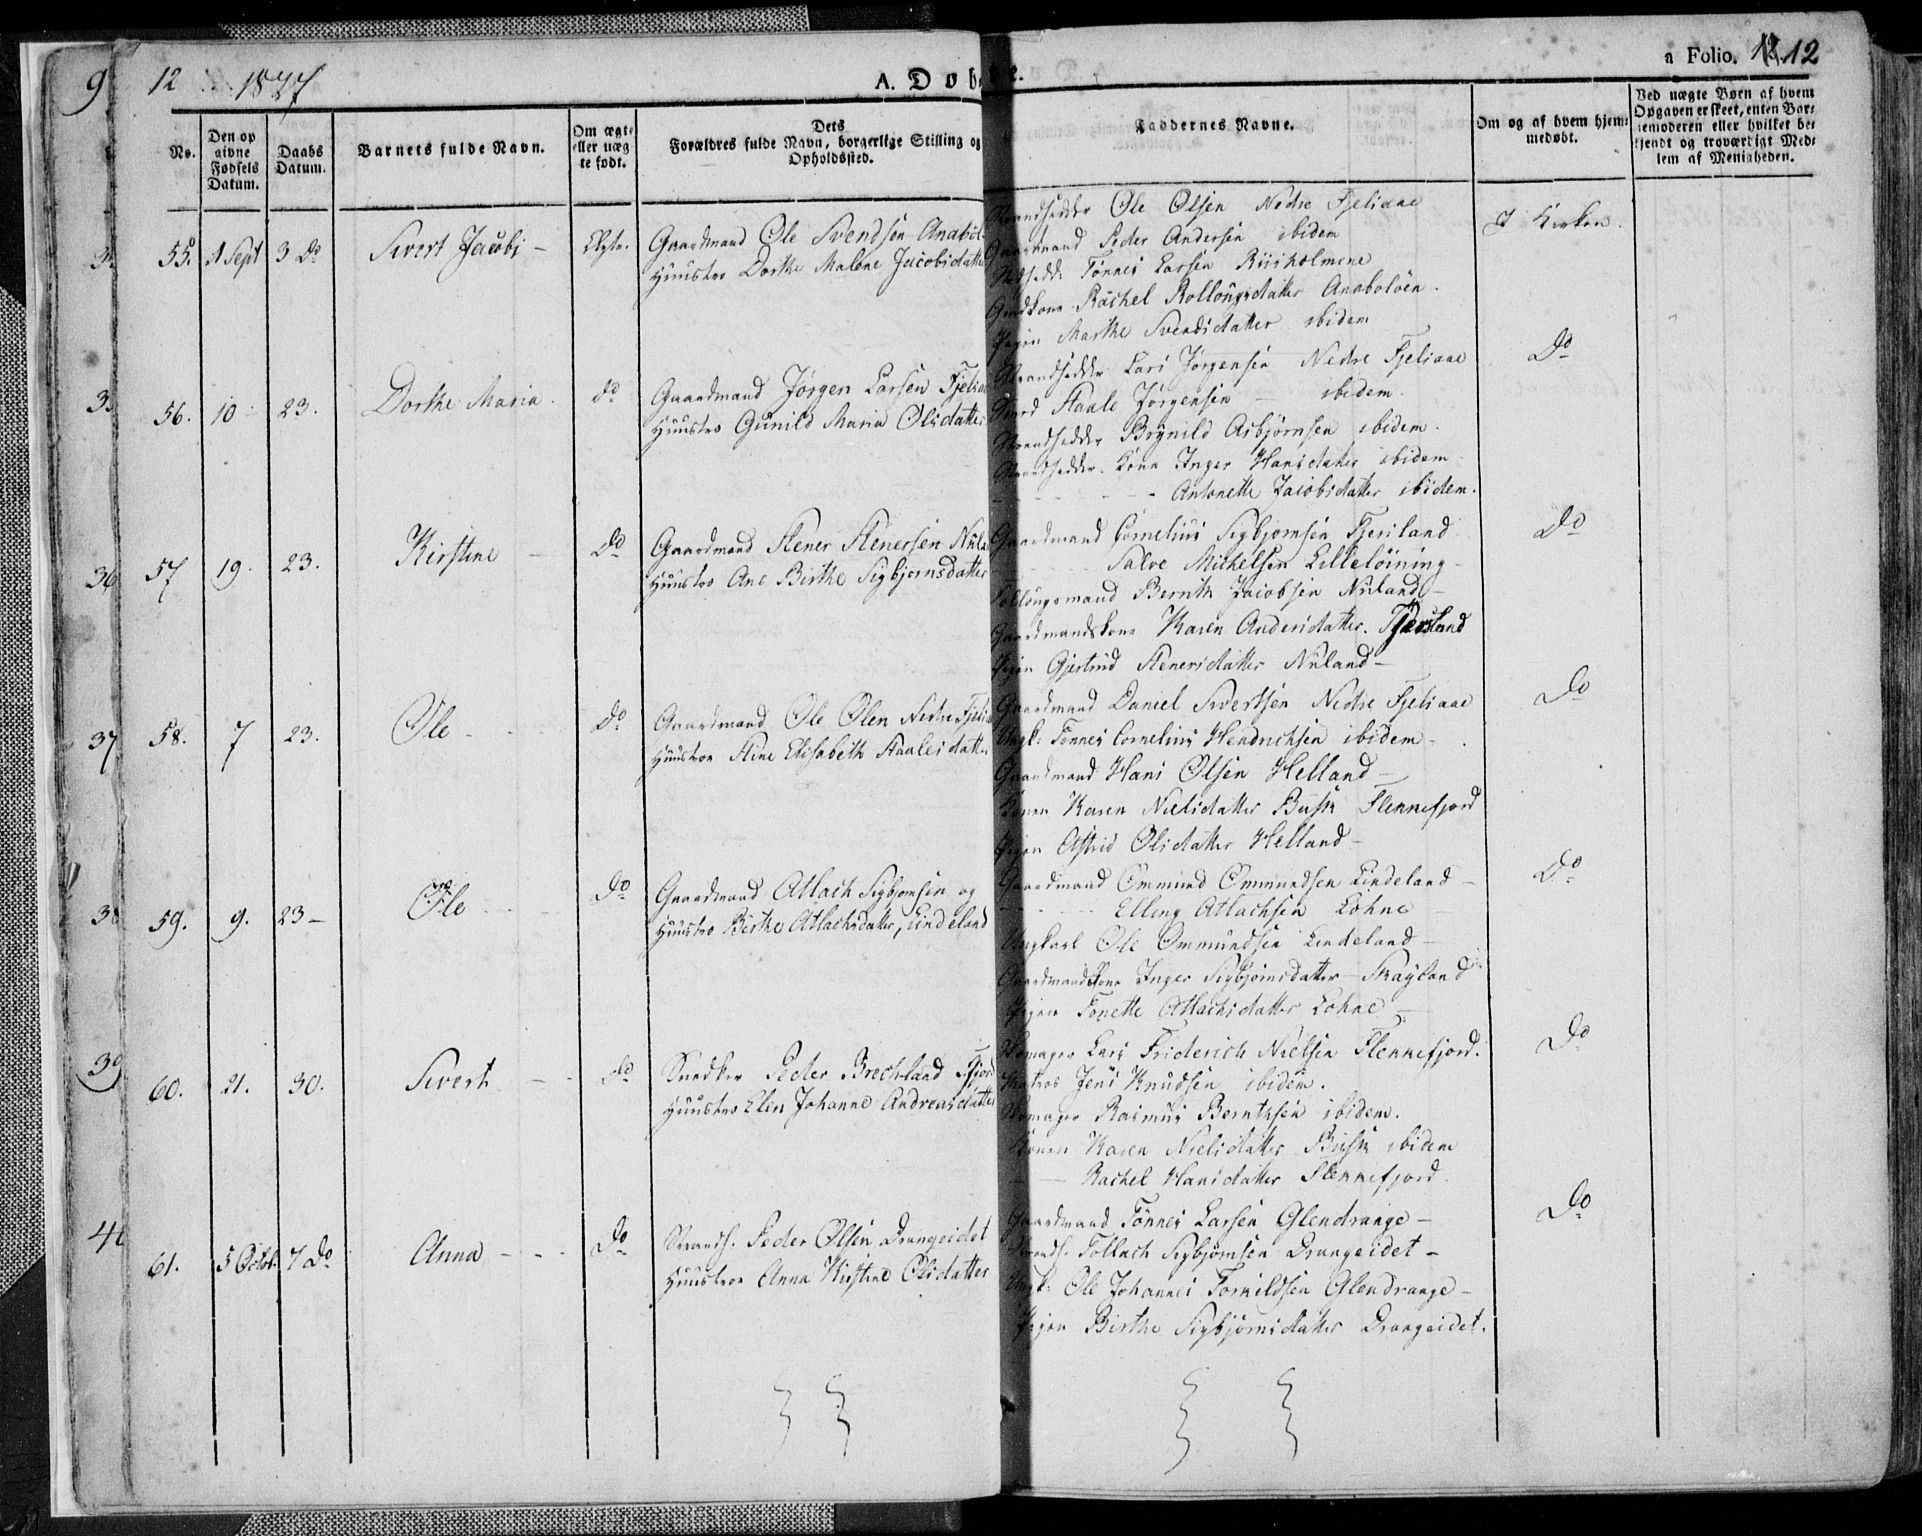 9
12 1827
A. Døbte.
a Folio. 12
No.
Den op
givne
Fødsels
Datum.
Daabs
Datum.
Barnets fulde Navn.
Om ægte
eller uæg
te født.
Dets
Forældres fulde Navn, borgerlige Stilling og
Opholdssted.
Faddernes Navne.
Om og af hvem hjem
medøbt.
Ved uægte Børn af hvem
Opgaven er skeet, enten Bar
nemoderen eller hvilket be
kjendt og troværdigt Med
lem af Menigheden.
55. 1 Sept 3 do Sivert Jacobi - Ægte.
Gaardmand Ole Svendsen Anabol
Huustro Dorthe Malene Jacobsdatter
Strandsidder Ole Olsen Nedre Fjeliaae
Gaardmand Peder Andersen ibidem
Tønnes Larsen Riisholmene
Rachel Rollougsdatter Anaboløen.
Pigen Marthe Svendsdatter ibidem
I Kirken.
56. 10 23. Dorthe Maria. do
Gaardmand Jørgen Larsen Fjeliaae
Huustro Gunild Maria Olsdatter
Strandsidder Lars Jørgensen Nedre Fjeliaae
Staale Jørgensen - ibidem.
Strandsidder Brynild Asbjørnsen ibidem.
Strandsidder Kone Inger Hansdatter ibidem
Antonette Jacobsdatter ibidem.
Do
57 19. 23. Kirstine - Do
Gaardmand Stener Stenersen Nuland
Huustro Ane Birthe Sigbjørnsdatter
Gaardmand Cornelius Sigbjørnsen Fjersland
Salve Michelsen Lilleløining -
Bernth Jacobsen Nuland -
Gaardmandskone Karen Andersdatter. Fjersland
Pigen Gjertrud Stenersdatter Nuland -
Do
58. 7 23. Ole - Do
Gaardmand Ole Olsen Nedre Fjeliaae
Huustroe Stine Elisabeth Staalesdatter
Gaardmand Daniel Sivertsen Nedre Fjeliaae
Ungk: Tønnes Cornelius Hendrichsen ibidem -
Gaardmand Hans Olsen Helland -
Konen Karen Nielsdatter Busk Flekkefjord
Pigen Astrid Olsdatter Helland -
Do
59. 9. 23 - Ole Do
Gaardmand Atlach Sigbjørnsen og
Huustro Birthe Atlachsdatter, Lindeland
Gaardmand Ommund Ommundsen Lindeland -
Elling Atlachsen Lohne
Ungkarl Ole Ommundsen Lindeland -
Gaardmandskone Inger Sigbjørnsdatter - Skagland
Pigen Tonette Atlachsdatter Lohne -
Do
60. 21. 30. Sivert - Do
Snedker Peder Brechland Fjord
Huustro Elen Johanne Andreasdatter
Skomager Lars Friderich Nielsen Flekkefjord.
Matros Jens Knudsen ibidem.
Skomager Rasmus Berntzen ibidem.
Konen Karen Nielsdatter Busk ibidem
Rachel Hansdatter Flekkefjord.
Do
61. 5 Octbr. 7 Do Anna - Do
Strands. Peder Olsen Drangeidet
Huustroe Anna Kirstine Olsdatter
Gaardmand Tønnes Larsen Glendrange -
Strands. Tollach Sigbjørnsen Drangeidet -
Ungk: Ole Johannes Torkildsen Glendrange -
Pigen Birthe Sigbjørnsdatter Drangeidet.
Do
36
37
39